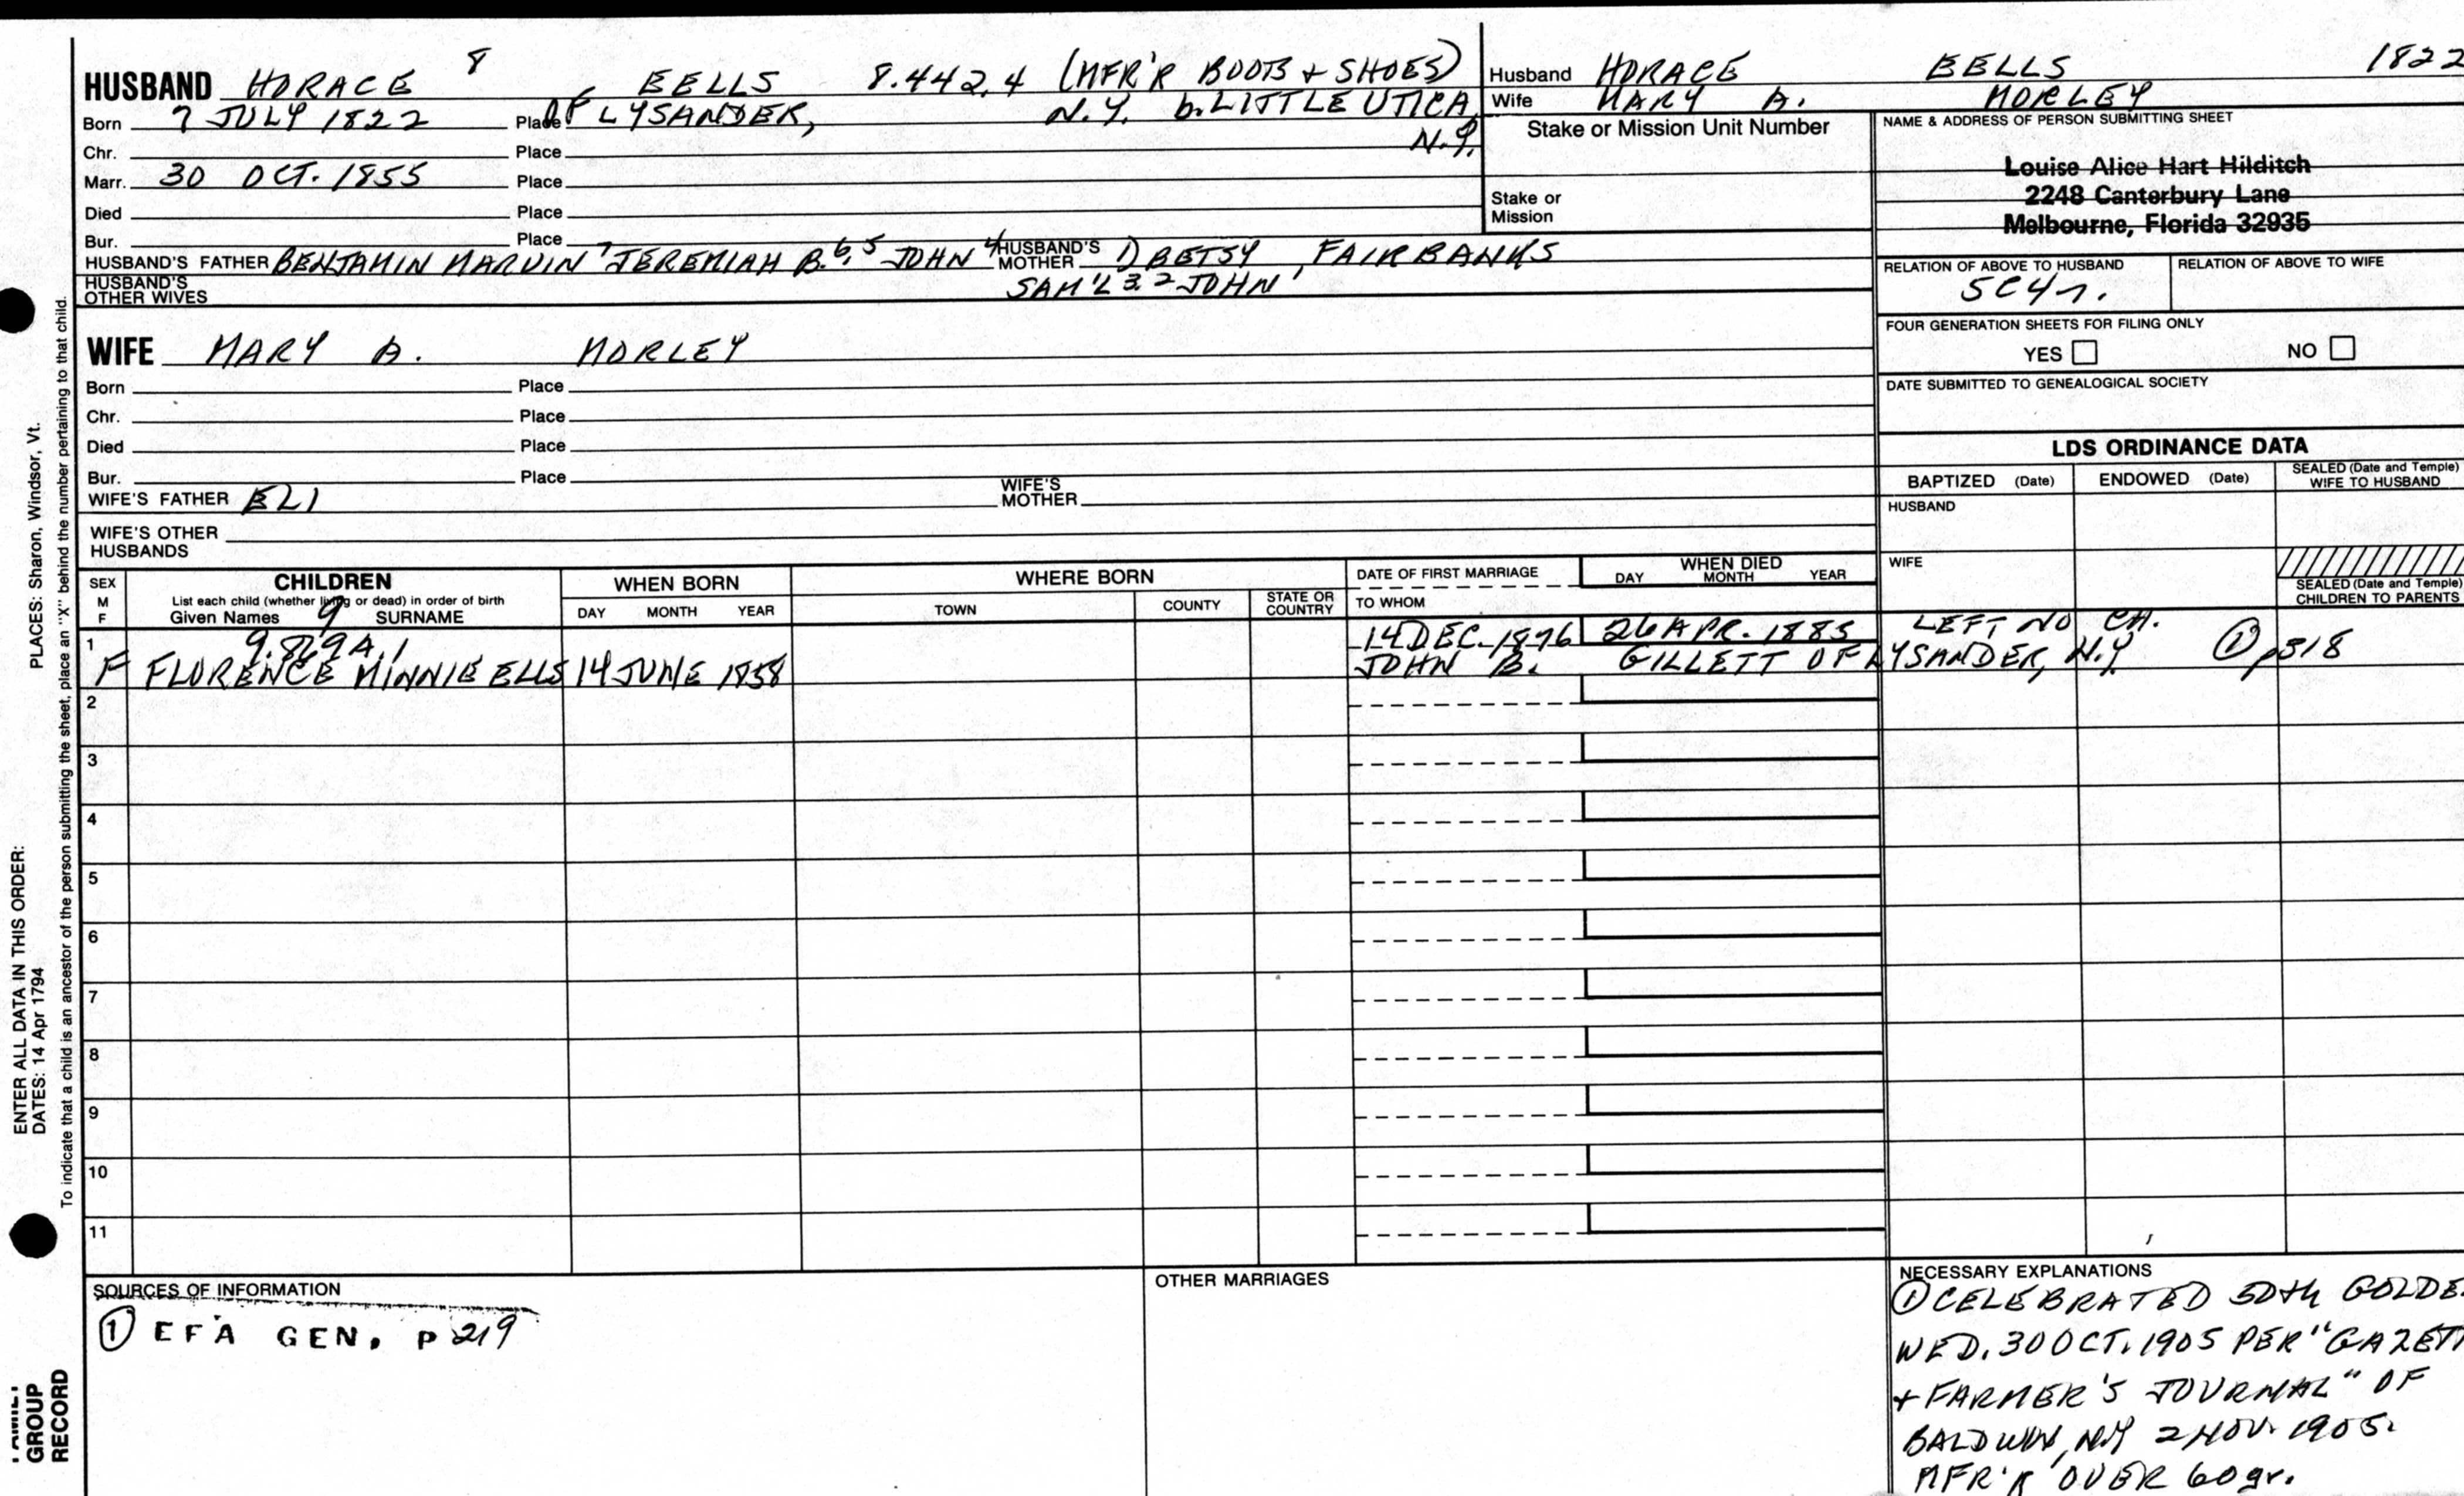 HUSBAND HORACE 8 EELLS 8.442.4 (MFR'R BOOTS + SHOES)
Born 7 JULY 1822 Place OF LYSANDER, N.Y. b. LITTLE UTICA, N.Y.
Chr. Place
Marr. 30 OCT. 1855 Place
Died Place
Bur. Place
HUSBAND'S FATHER BENJAMIN MARVIN 7 JEREMIAH B. 6, 5 JOHN 4 HUSBAND'S MOTHER 1) BETSY FAIRBANKS
SAM'L 3. 2 JOHN 1
HUSBAND'S OTHER WIVES
WIFE MARY A. MORLEY
Born Place
Chr. Place
Died Place
Bur. Place
WIFE'S FATHER ELI WIFE'S MOTHER
WIFE'S OTHER HUSBANDS
Husband HORACE EELLS 1822
Wife MARY A. MORLEY
Stake or Mission Unit Number
Stake or Mission
NAME & ADDRESS OF PERSON SUBMITTING SHEET
Louise Alice Hart Hilditch
2248 Canterbury Lane
Melbourne, Florida 32935
RELATION OF ABOVE TO HUSBAND RELATION OF ABOVE TO WIFE
5C4r.
FOUR GENERATION SHEETS FOR FILING ONLY
YES NO
DATE SUBMITTED TO GENEALOGICAL SOCIETY
LDS ORDINANCE DATA
BAPTIZED (Date) ENDOWED (Date) SEALED (Date and Temple) WIFE TO HUSBAND
HUSBAND
WIFE
SEALED (Date and Temple) CHILDREN TO PARENTS
SEX M F
CHILDREN
List each child (whether living or dead) in order of birth
Given Names 9 SURNAME
WHEN BORN
DAY MONTH YEAR
WHERE BORN
TOWN COUNTY STATE OR COUNTRY
DATE OF FIRST MARRIAGE
TO WHOM
WHEN DIED
DAY MONTH YEAR
1 9.829A.1 14 DEC. 1876 26 APR. 1885 LEFT NO CH.
F FLORENCE MINNIE ELLS 14 JUNE 1858 JOHN B. GILLETT OF LYSANDER, N.Y. ① p318
2
3
4
5
6
7
8
9
10
11
SOURCES OF INFORMATION
① EFA GEN. P 219
OTHER MARRIAGES
NECESSARY EXPLANATIONS
① CELEBRATED 50th GOLDE
WED. 30 OCT. 1905 PER "GAZETT
+ FARMER'S JOURNAL" OF
BALDWIN, N.Y 2 NOV. 1905.
MFR'R OVER 60 yr.
PLACES: Sharon, Windsor, Vt.
To indicate that a child is an ancestor of the person submitting the sheet, place an "X" behind the number pertaining to that child.
ENTER ALL DATA IN THIS ORDER:
DATES: 14 Apr 1794
FAMILY
GROUP
RECORD